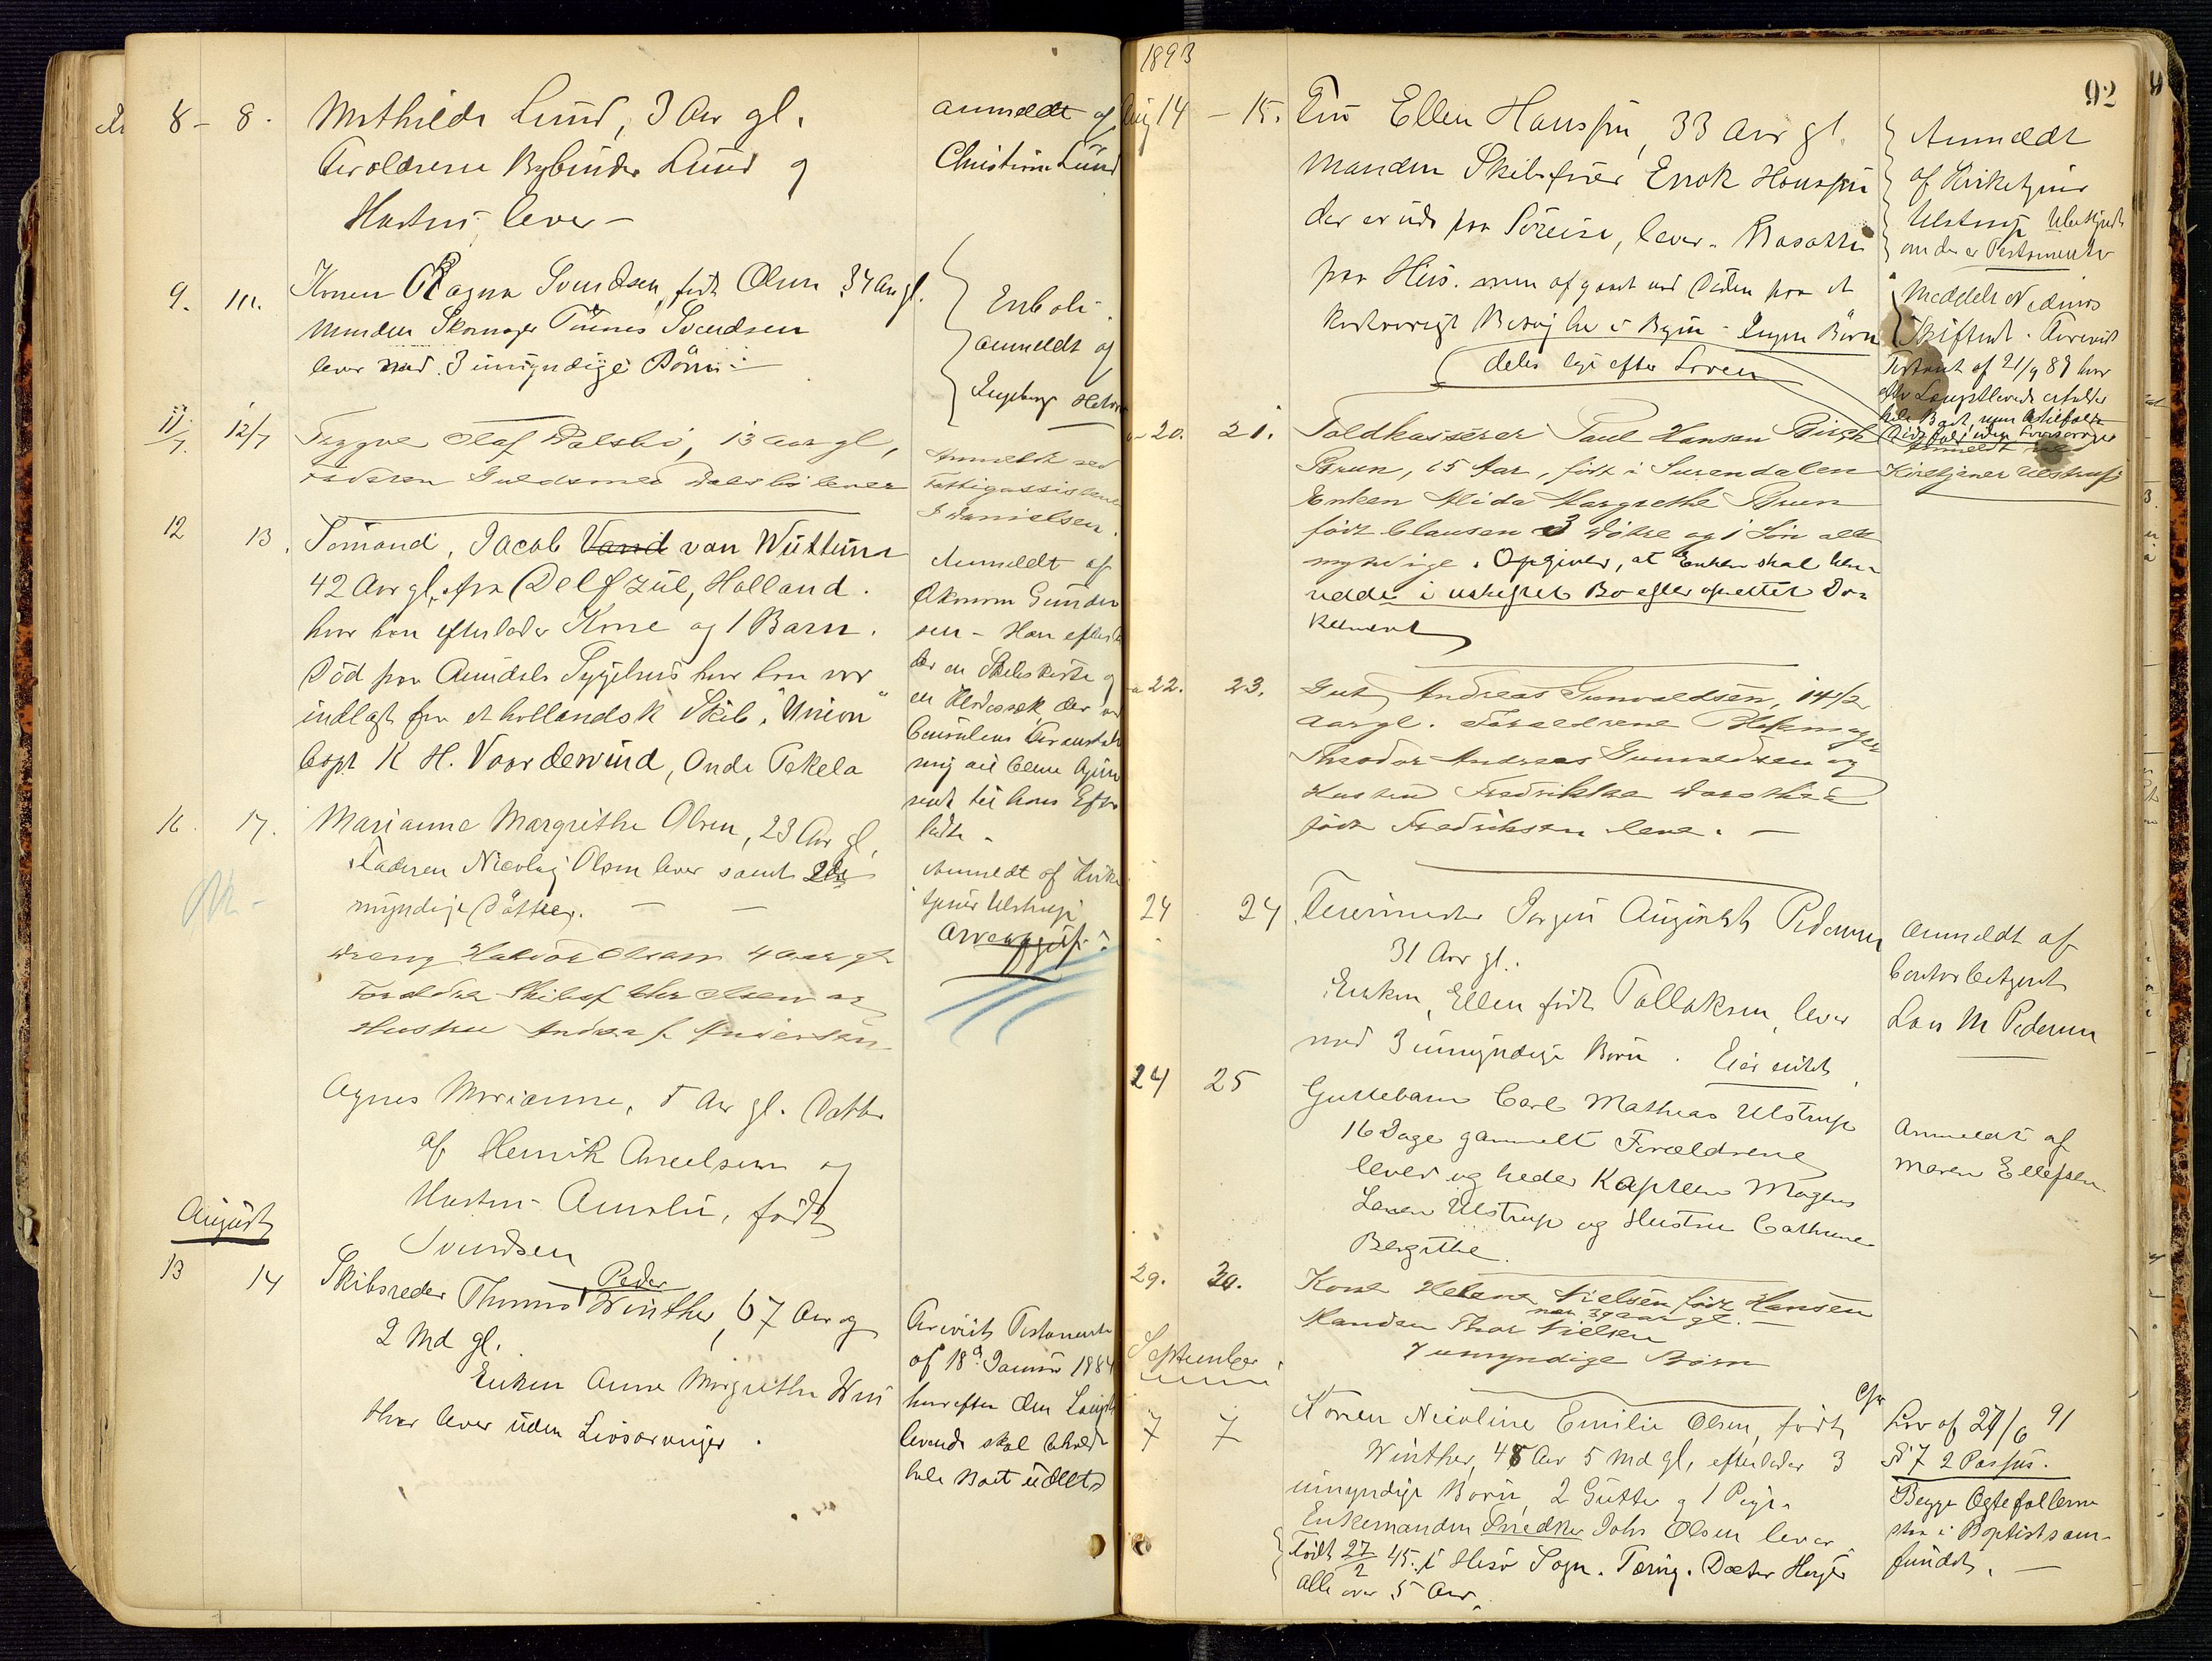 8 - 8. Mathilde Lund, 3 Aar gl.
Forældrene Bybinder Lund og
Hustru lever -
anmeldt af
Christine Lund
9. 10. Konen Ragna Svendsen, født Olsen 34 Aar gl.
Manden Skomager Tønnes Svendsen
lever med 3 umyndige Børn -
anmeldt af
Ingeborg
11/7. 12/7 Trygve Olaf Dalsbö, 13 aar gl,
Faderen Guldsmed Dalsbö lever
Anmeldt ved
Fattigassistent
Danielsen.
12 13. Sömand, Jacob Vand van Wuttum
42 Aar gl. fra Delfzül, Holland.
hvor han efterlader Kone og 1 Barn.
Död paa Arendals Sygehus hvor han var
indlagt fra et hollandsk Skib "Union"
Capt K H. Voordewind, Onde Pekela
Anmeldt af
Økonom Gunder
sen - Han efterla
der en Skibskiste og
en Klædesæk der ved
Consulens Foranstalt
ning
sendt til hans Efter
ladte -
16. 17. Marianne Margrethe Olsen, 23 Aar gl.
Faderen Nicolay Olsen lever samt 2de
myndige Døttre. — —
Anmeldt af Kirke
tjener Ulstrup
Arveopgjør
Dreng Halvor Olsen 4 Aar gl
Forældre Skibsf Olsen og
Hustru Andrea f. Andersen
Agnes Marianne, 5 Aar gl. Datter
af Henrik Axcelsen og
Hustru Amalie, født
Svendsen
August
13 14 Skibsreder Thomas Peder Winther, 67 Aar og
2 Md gl.
Enken Anne Margrethe Win
ther lever uden Livsarvinger.
Forevist Testamente
af 18d Januar 1884
hvorefter den Længst
levende skal beholde
hele Boet udelt
1893
92
Aug 14 - 15. Fru Ellen Hanssen, 33 Aar gl.
Manden Skibsfører Enok Hanssen
der er ude paa Söreise, lever. Bosatte
paa Hisö. men afgaaet ved Döden paa et
kortvarigt Besög her i Byen - Ingen Börn
deles lige efter Loven
Anmeldt
af Kirketjener
Ulstrup Ubekjendt
om der er Testamente
Meddelt Nedenes
Skifteret. Forevist
Testamt af 21/9 87 hvor
efter Længstlevende erholder
hele Boet,
Anmeldt ved
Kirketjener Ulstrup
20. 21. Toldkasserer Paul Hansen Birch
Brun, 65 Aar, født i Surendalen
Enken Alida Margrethe Brun
født Clausen 3 Døtre og 1 Søn alle
myndige. Opgiver, at Enken skal hen-
sidde i uskiftet Bo efter oprettet Do-
kument
22. 23. Gut Andreas Gunvaldsen, 14 1/2
aar gl. Forældrene
Theodor Andreas Gunvaldsen og
Hustru Fredrikke Dorothea
født Fredriksen lever. —
24 24 Jørgen August Pedersen
31 Aar gl.
Enken, Ellen født Tallaksen, lever
med 3 umyndige Børn. Eier intet
Anmeldt af
Contorbetjent
Lars M Pedersen
24 25 Guttebarn Carl Mathias Ulstrup
16 Dage gammelt Forældrene
lever og heder Kaptein Mogens
Larsen Ulstrup og Hustru Cathrine
Bergitte.
Anmeldt af
Maren Ellefsen
29. 30. Kone Helene Nielsen født Hansen
nær 39 aar gl. —
Manden Thor Nielsen
7 umyndige Børn
September.
7 7 Konen Nicoline Emilie Olsen, født
Winther, 48 Aar 5 Md gl, efterlader 3
umyndige Børn, 2 Gutter og 1 Pige.
Enkemanden Snedker Johs Olsen lever.
Født 27/2 45. i Hisö Sogn.
alle over 5 Aar.
cfr Lov af 27/6 91
§ 7 2 Passus.
Begge Ægtefollerne
staa i Baptistsam-
fundet. —